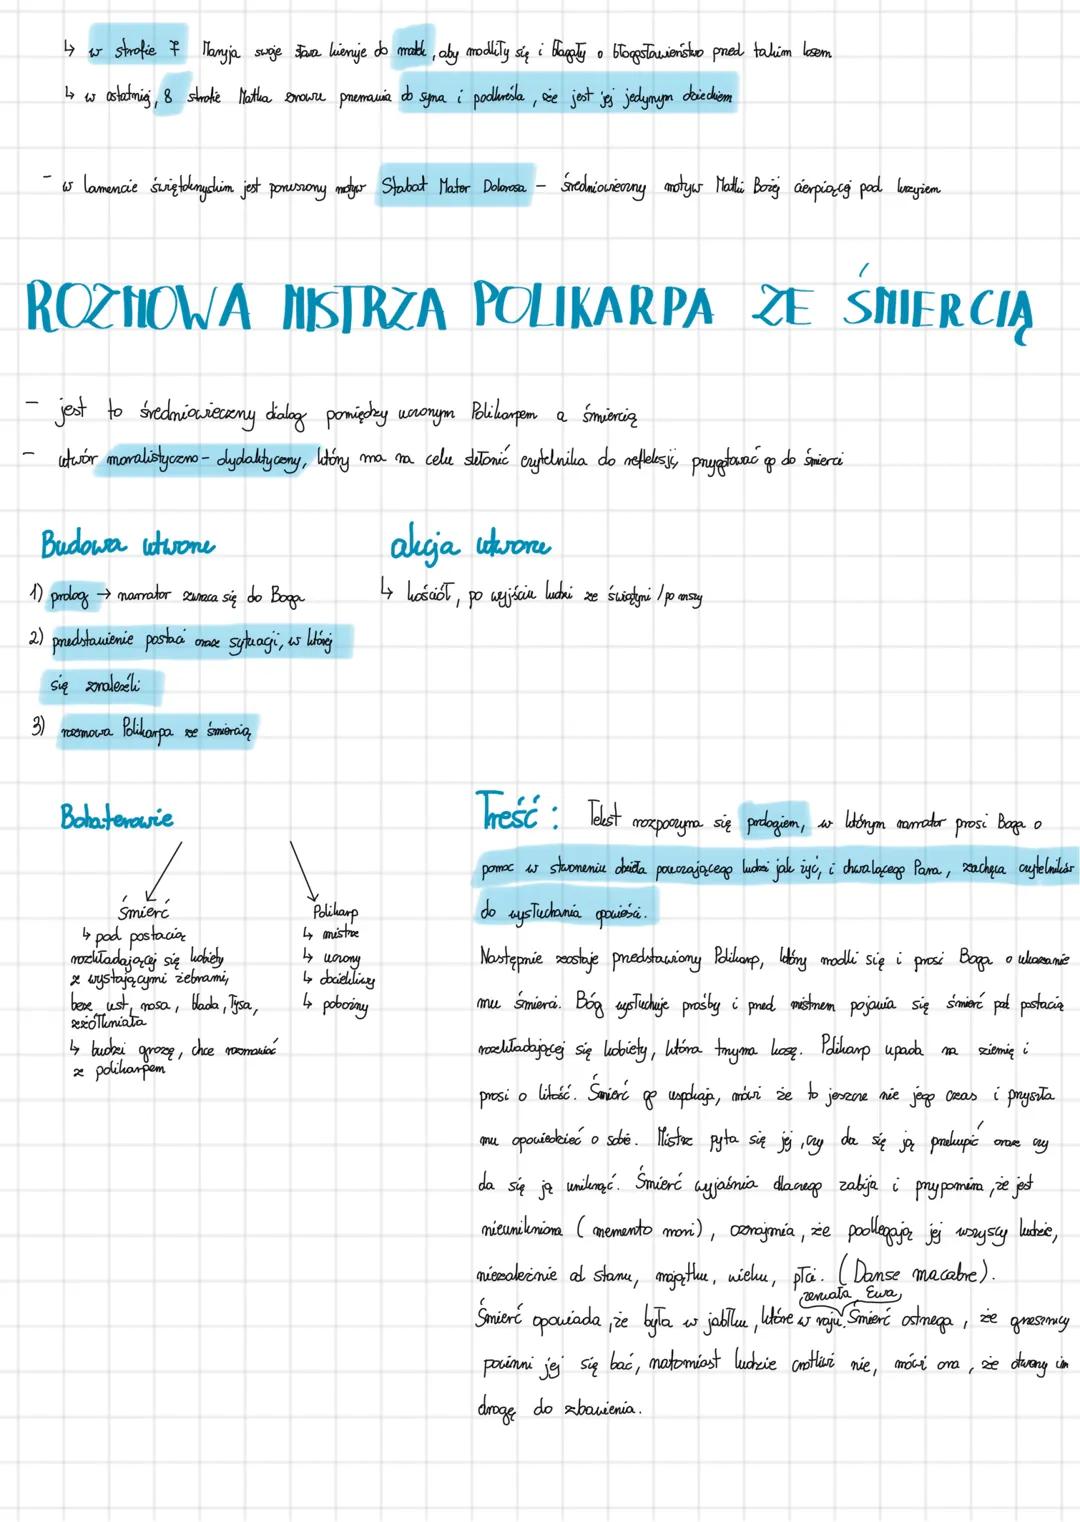 ↳ w strofie 7 Maryja swoje słowa kieruje do matek, aby modliły się i błagały o błogosławieństwo przed takim losem
↳ w ostatniej, 8 strofie Matka znowu przemawia do syna i podkreśla, że jest jej jedynym dzieckiem
- w lamencie świętokrzyskim jest poruszony motyw Stabat Mater Dolorosa - średniowieczny motyw Matki Bożej cierpiącej pod krzyżem
ROZMOWA MISTRZA POLIKARPA ZE ŚMIERCIĄ
- jest to średniowieczny dialog pomiędzy uczonym Polikarpem a śmiercią
- utwór moralistyczno-dydaktyczny, który ma na celu skłonić czytelnika do refleksji, przygotować go do śmierci
Budowa utworu
1) prolog → narrator zwraca się do Boga
2) przedstawienie postaci oraz sytuacji, w której
się znaleźli
3) rozmowa Polikarpa ze śmiercią
akcja utworu
↳ kościół, po wyjściu ludzi ze świątyni / po mszy
Bohaterowie
Śmierć
↳ pod postacią
rozkładającej się kobiety
z wystającymi żebrami,
bez ust, nosa, blada, łysa,
zżółkniała
↳ budzi grozę, chce rozmawiać
z polikarpem
Polikarp
↳ mistrz
↳ uczony
↳ dociekliwy
↳ pobożny
Treść: Tekst rozpoczyna się prologiem, w którym narrator prosi Boga o
pomoc w stworzeniu dzieła pouczającego ludzi jak żyć, i chwalącego Pana, zachęca czytelników
do wysłuchania opowieści.
Następnie zostaje przedstawiony Polikarp, który modli się i prosi Boga o ukazanie
mu śmierci. Bóg wysłuchuje prośby i przed mistrzem pojawia się śmierć pod postacią
rozkładającej się kobiety, która trzyma kosę. Polikarp upada na ziemię i
prosi o litość. Śmierć go uspokaja, mówi że to jeszcze nie jego czas i przyszła
mu opowiedzieć o sobie. Mistrz pyta się jej, czy da się ją przekupić oraz czy
da się ją uniknąć. Śmierć wyjaśnia dlaczego zabija i przypomina, że jest
nieunikniona (memento mori), oznajmia, że podlegają jej wszyscy ludzie,
niezależnie od stanu, majątku, wieku, płci. (Danse macabre).
zerwała Ewa
Śmierć opowiada, że była w jabłku, które w raju. Śmierć ostrzega, że grzesznicy
powinni jej się bać, natomiast ludzie cnotliwi nie, mówi ona, że otworzy im
drogę do zbawienia.